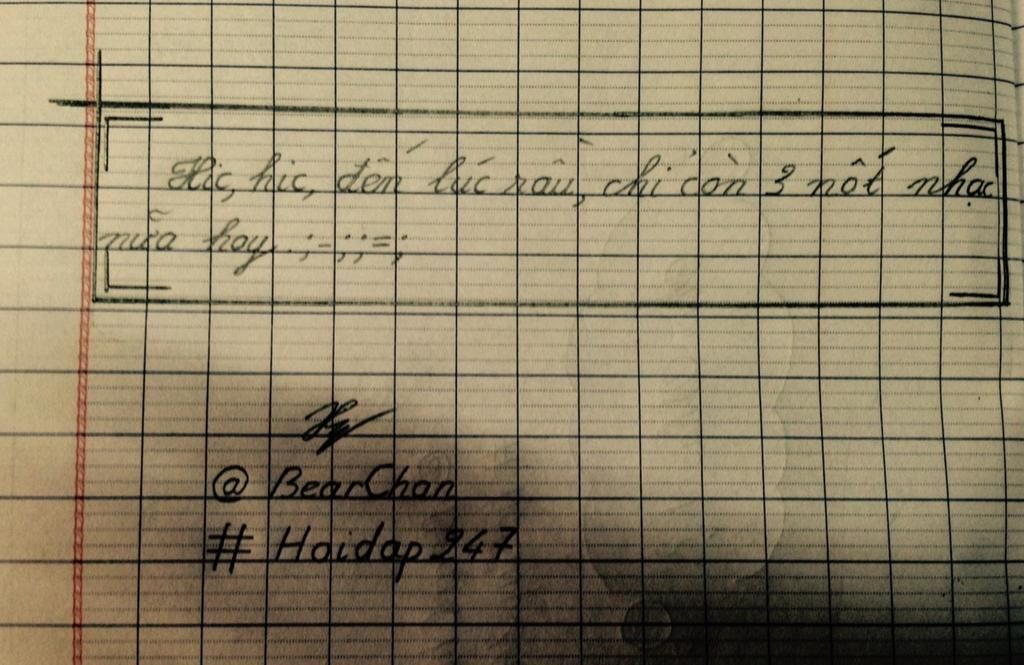 Hic, hic, đến lúc rồi, chỉ còn 3 nốt nhạc
nữa hoy. ;-;;=;
@ BearChan
# Hoidap247